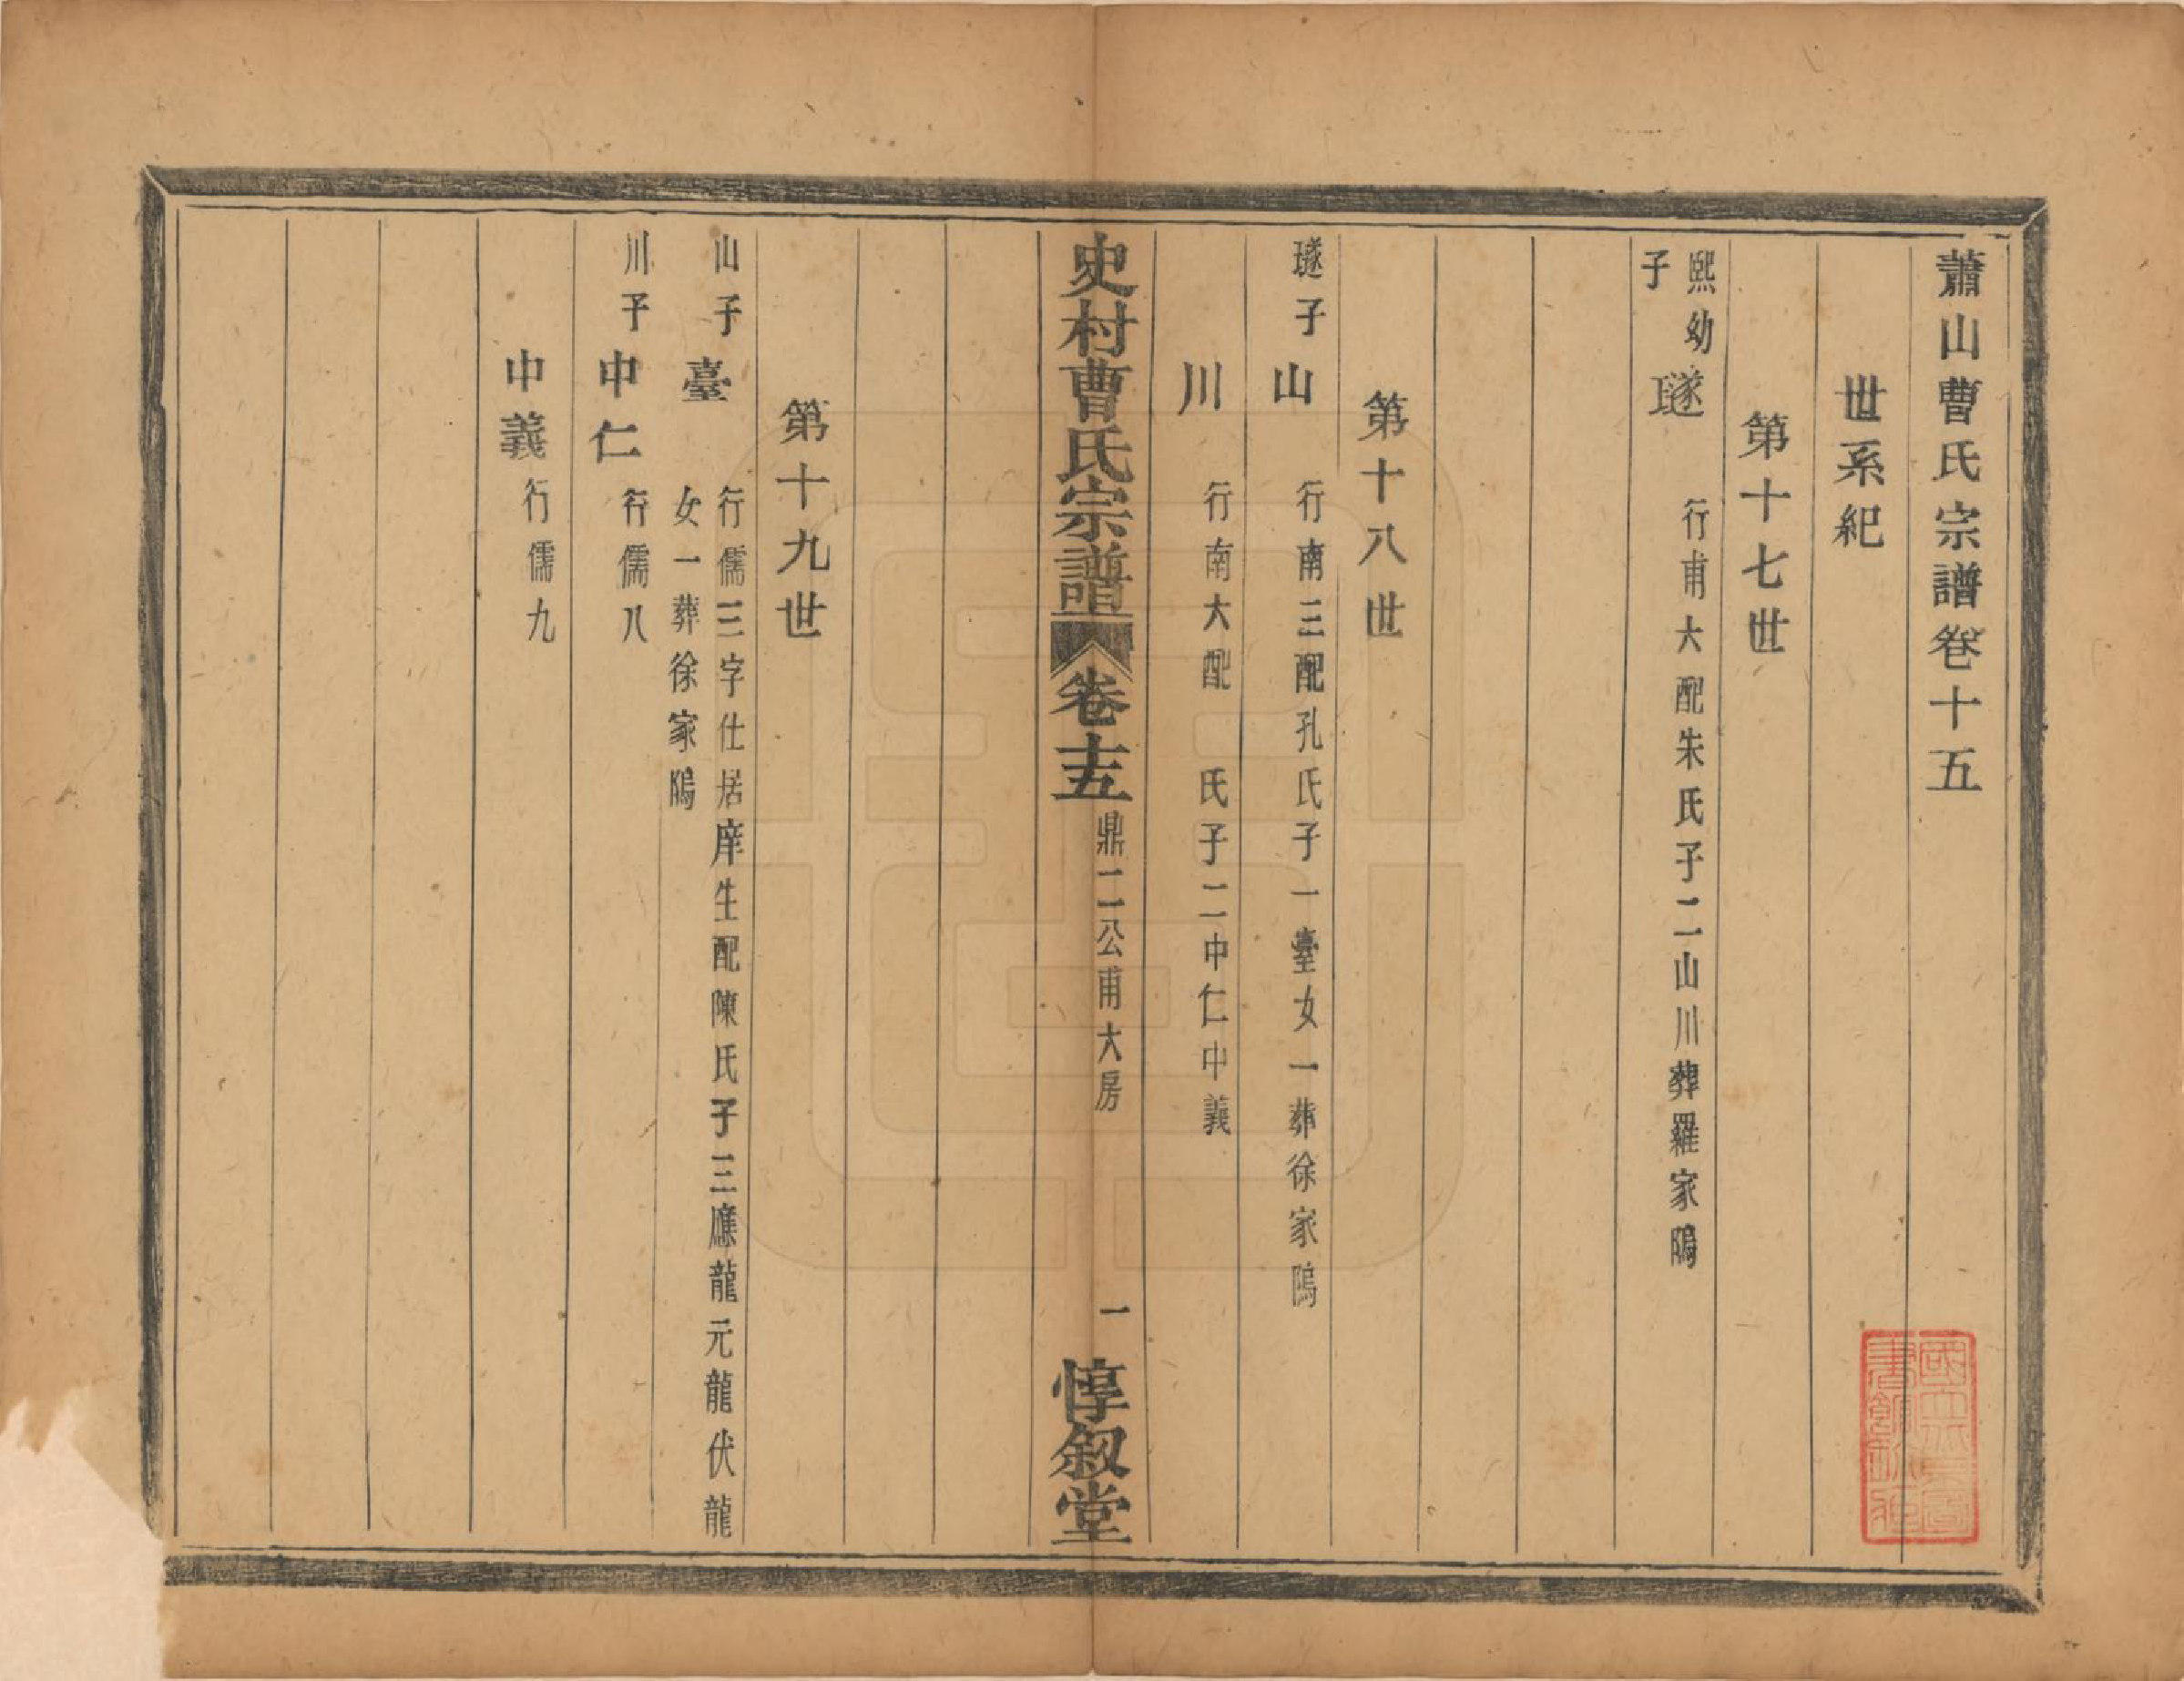 蕭山曹氏宗譜卷十五
世系紀
第十七世
熙幼子
璲
行甫大配朱氏子二山川葬羅家隖
第十八世
璲子
山
行南三配孔氏子一臺女一葬徐家隖
川
行南大配　氏子二中仁中義
史村曹氏宗譜　卷十五　鼎二公甫大房　一　惇叙堂
第十九世
山子
臺
行儒三字仕居庠生配陳氏子三應龍元龍伏龍
女一葬徐家隖
川子
中仁
行儒八
中義
行儒九